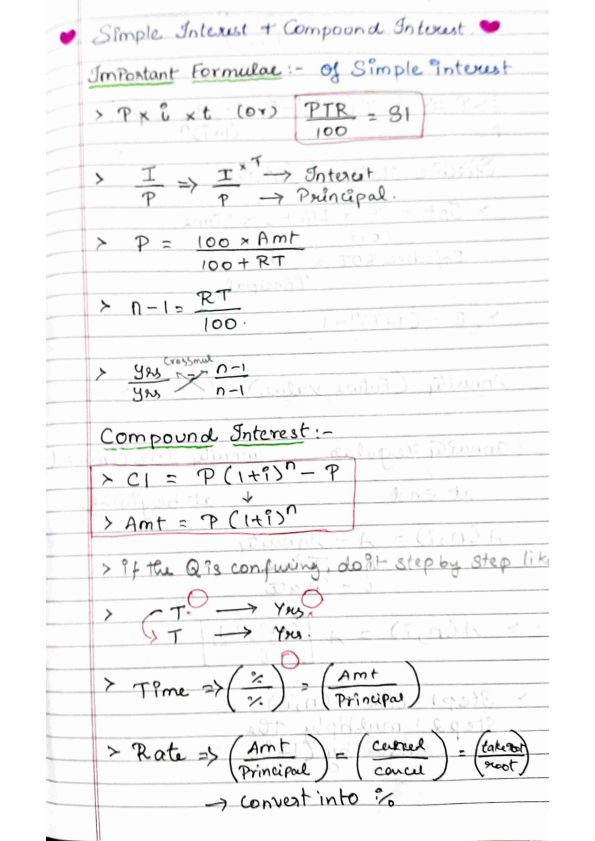 Simple Interest + Compound Interest
Important Formulae :- Of Simple interest
> P x i x t (or) PTR/100 = SI
> I/P => I x T/P → Interest → Principal.
> P = 100 x Amt / 100 + RT
> n-1 = RT/100.
> yrs/yrs crossmul = n-1/n-1
Compound Interest :-
> CI = P(1+i)^n - P
↓
> Amt = P(1+i)^n
> if the Q is confusing, do it step by step like
> T. → Yrs.
T → Yrs.
> Time => (%/%) = (Amt/Principal)
> Rate => (Amt/Principal) = (cancel/cancel) = (take root/root)
→ convert into %